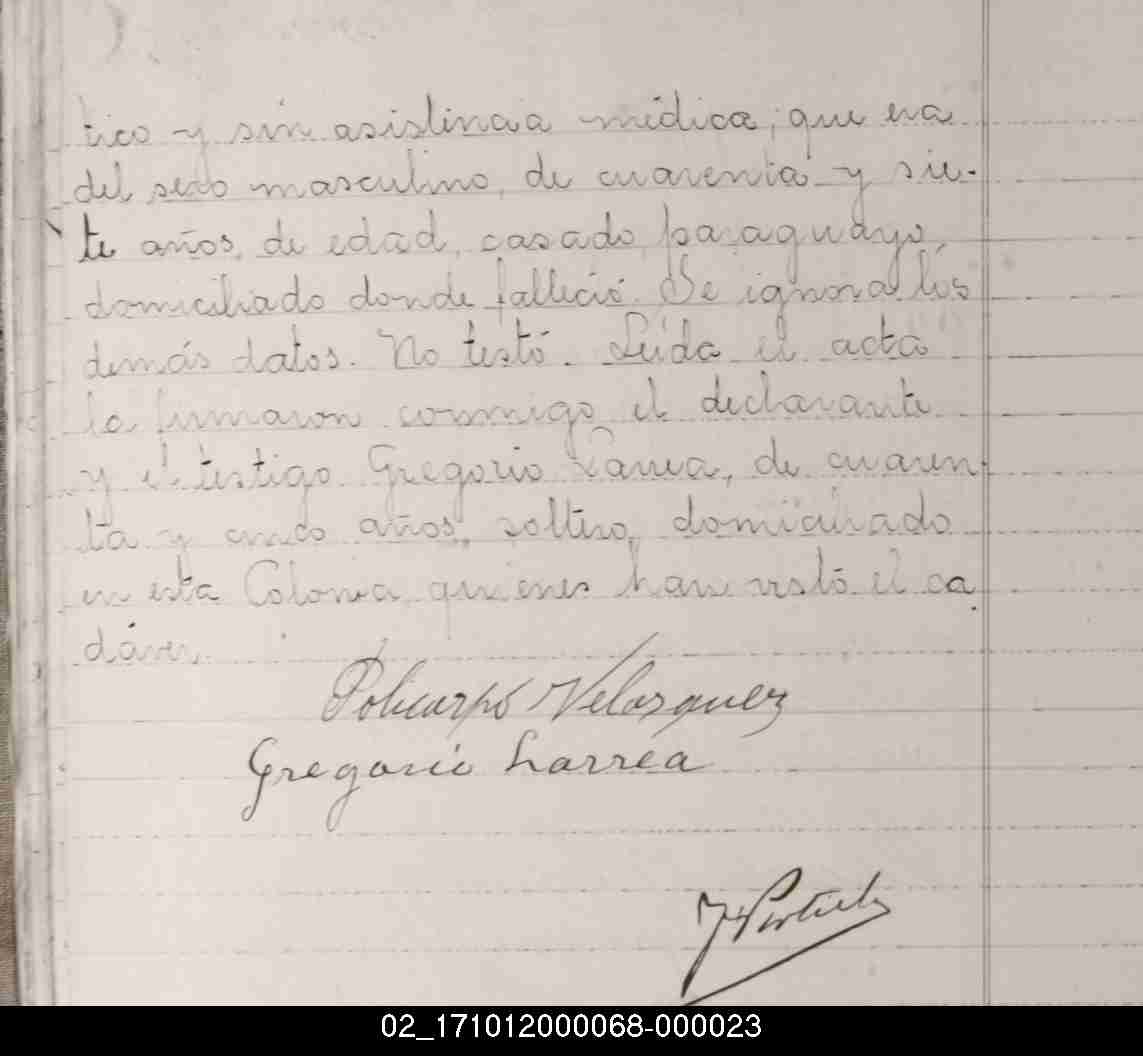 tico y sin asistencia médica; que era
del sexo masculino, de cuarenta y sie-
te años, de edad, casado, paraguayo,
domiciliado donde falleció. Se ignora los
demás datos. No testó. Leída el acta
la firmaron conmigo el declarante
y el testigo Gregorio Larrea, de cuaren-
ta y cinco años, soltero, domiciliado
en esta Colonia, quienes han visto el ca
dáver.
Policarpo Velazquez
Gregorio Larrea
02_171012000068-000023